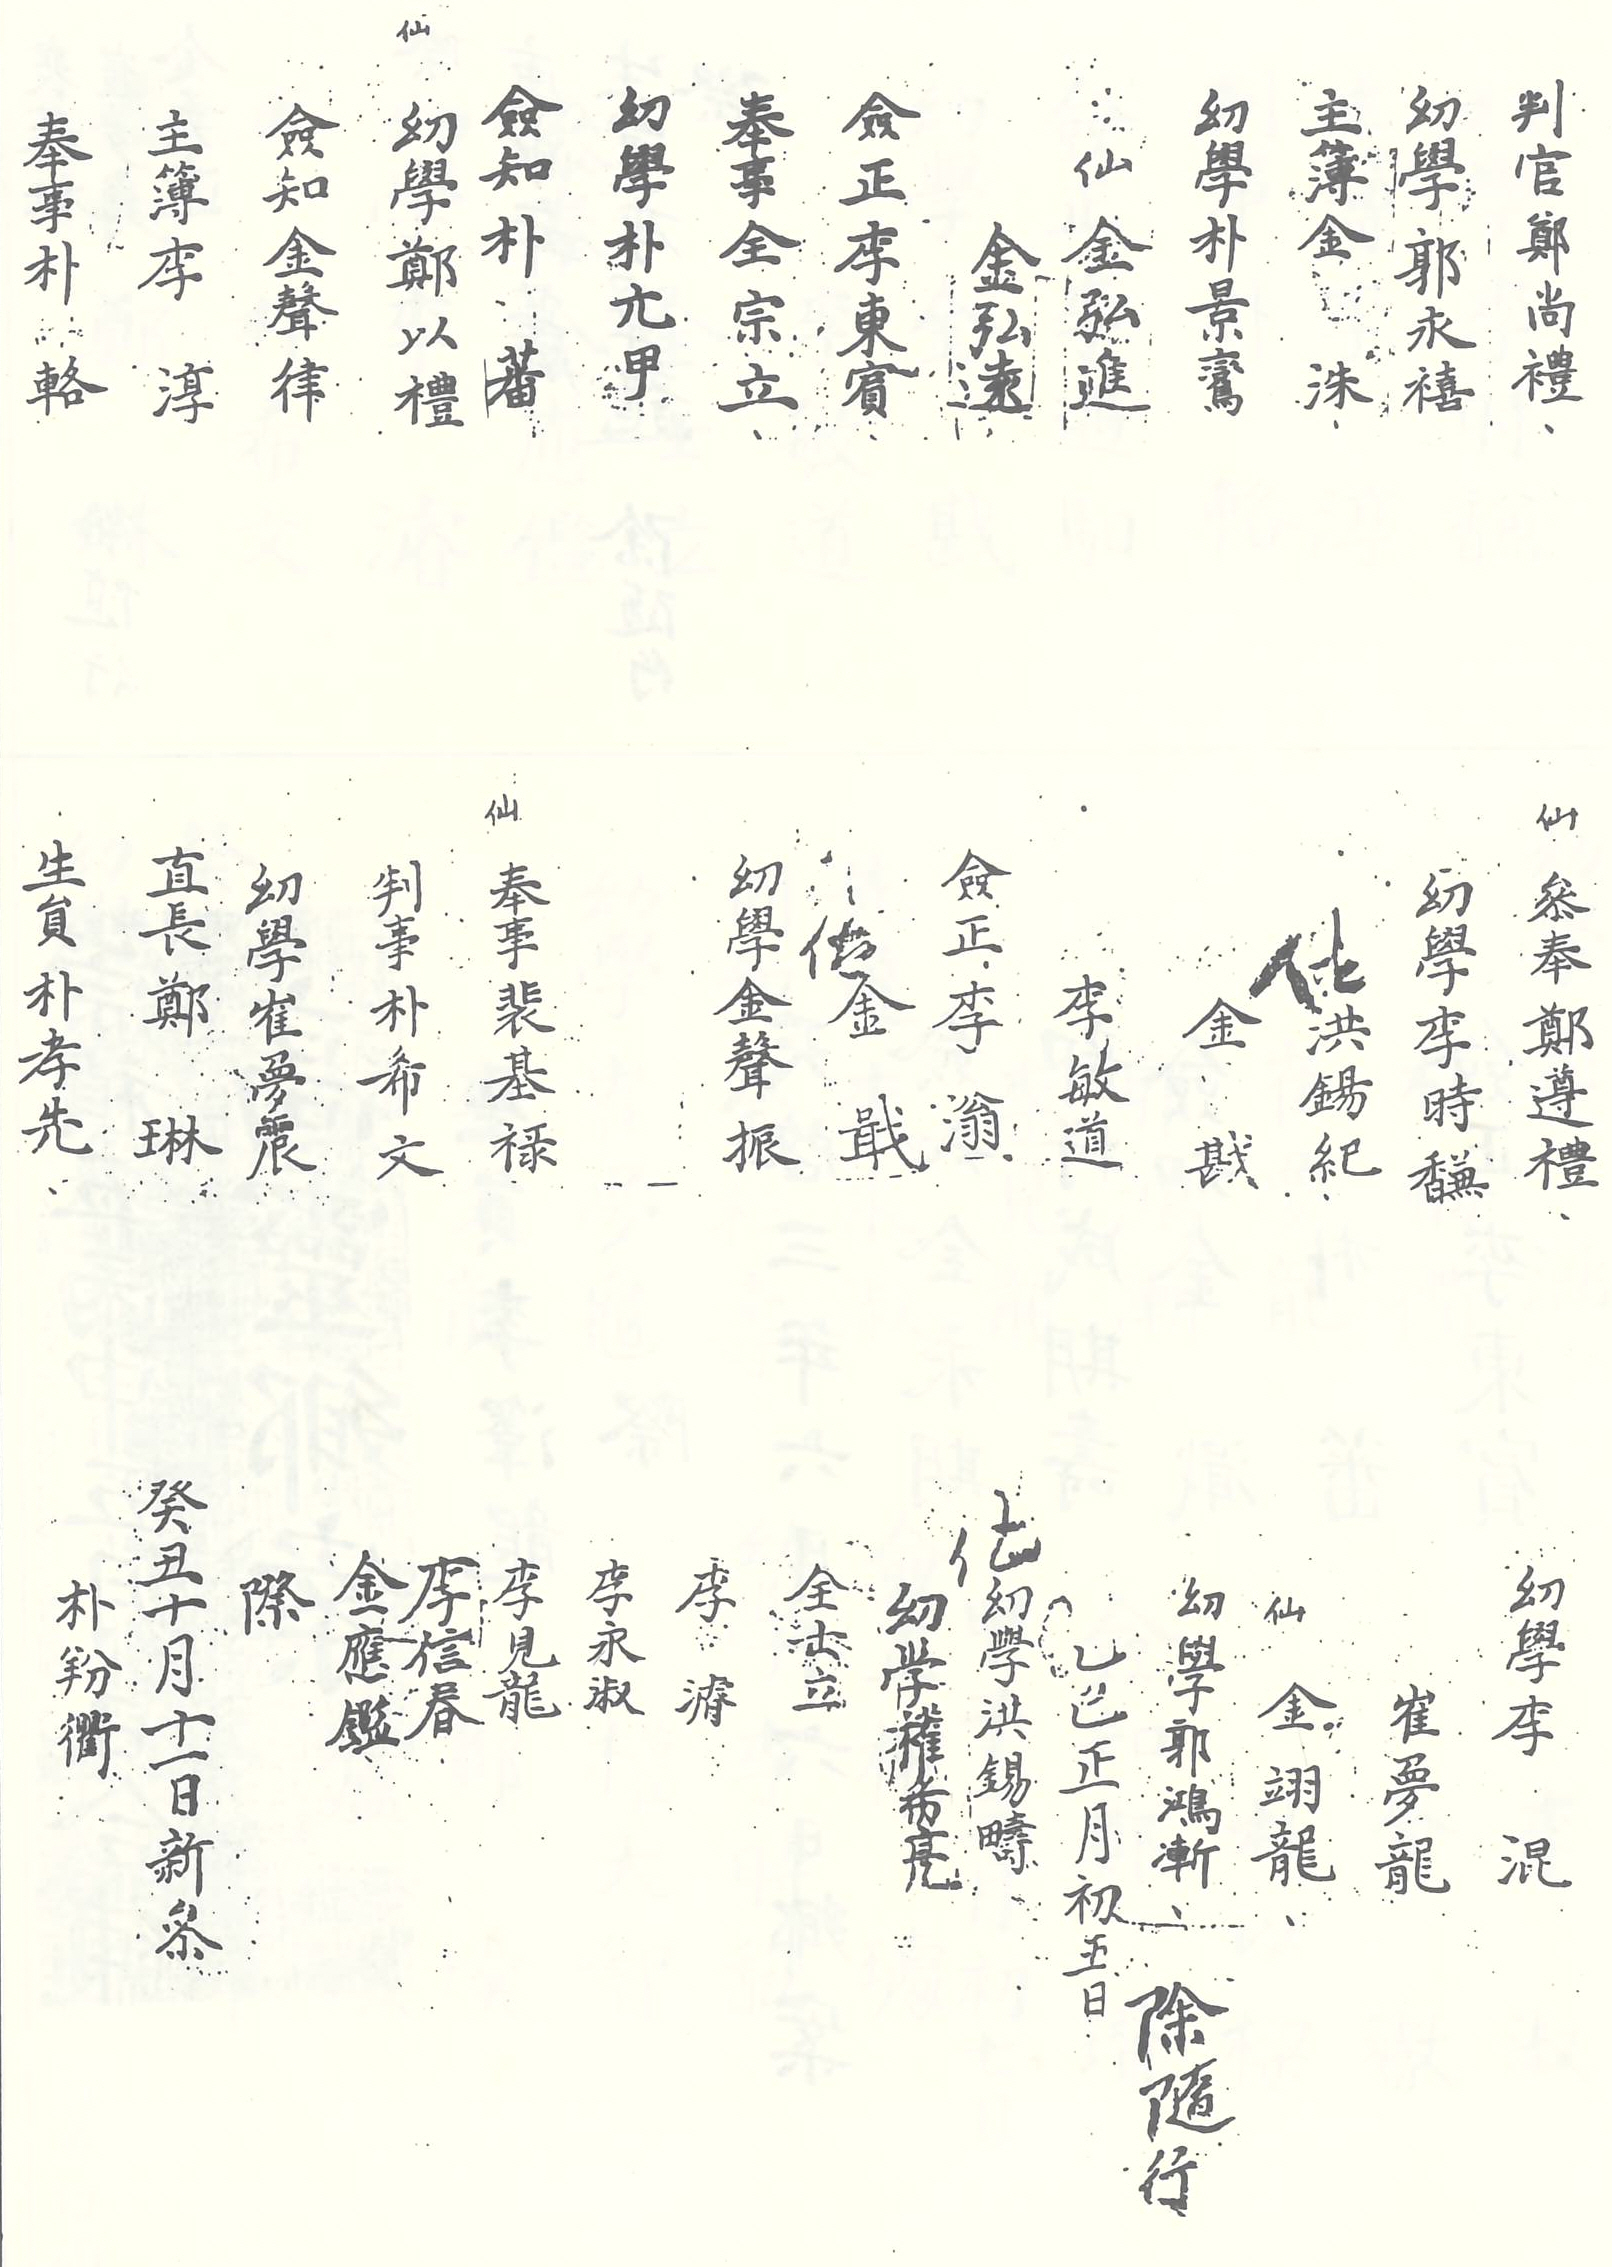 判官鄭尚禮
幼學郭永禧
主簿金洙
幼學朴景鸞
仙 金弘進
金弘遠
僉正李東賓
奉事全宗立
幼學朴亢甲
僉知朴蕃
仙 幼學鄭以禮
僉知金聲律
主簿李淳
奉事朴輅
仙 叅奉鄭遵禮
幼學李時馦
仙 洪錫紀
金戡
李敏道
僉正李滃
僊 金戢
幼學金聲振
仙 奉事裴基祿
判事朴希文
幼學崔夢震
直長鄭琳
生員朴孝先
幼學李混
崔夢龍
仙 金翊龍
幼學郭鴻漸
除隨行
乙巳正月初五日
仙 幼學洪錫疇
幼学希亮
全立
李濬
李永淑
李見龍
李信春
金應鑑
際
癸丑十月十一日新叅
朴衢